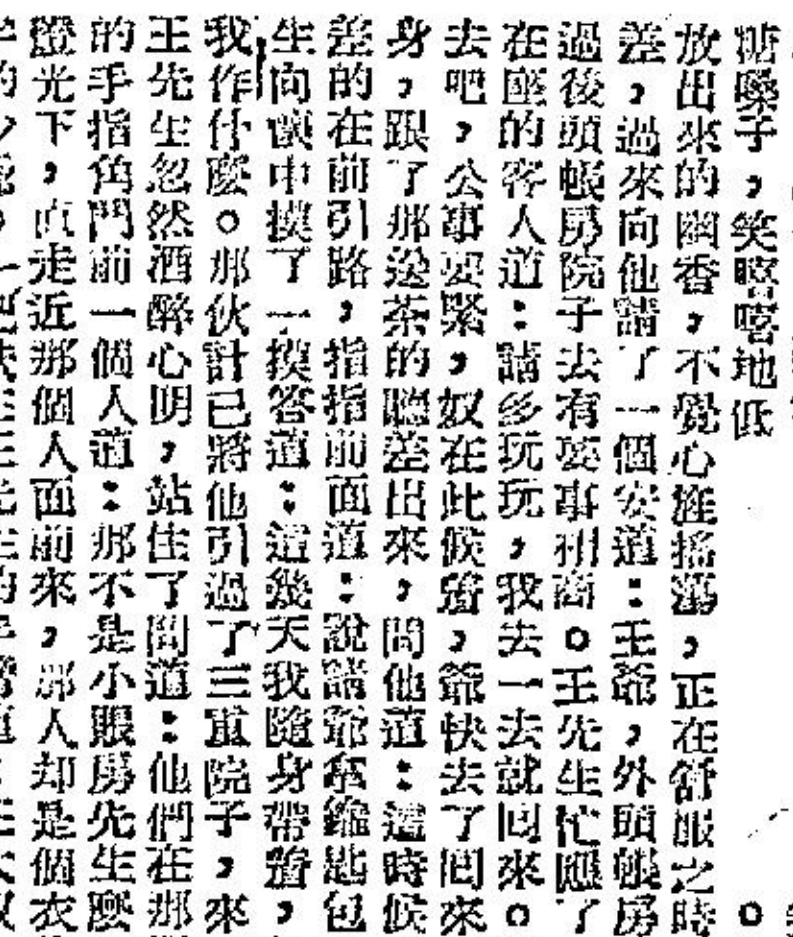 糖嗓子，笑嘻嘻地低
放出來的幽香，不覺心旌搖蕩，正在舒服之時
差，過來向他請了一個安道：王爺，外頭帳房
過後頭帳房院子去有要事相商。王先生忙應了
在座的客人道：請多玩玩，我去一去就回來。
去吧，公事要緊，奴在此候着，爺快去了回來
身，跟了那送茶的聽差出來，問他道：這時候
差的在前引路，指指前面道：說請爺拿鑰匙包
生向懷中摸了一摸答道：這幾天我隨身帶着，
我作什麼。那伙計已將他引過了三重院子，來
王先生忽然酒醉心明，站住了問道：他們在那
的手指角門前一個人道：那不是小賬房先生麼
燈光下，直走近那個人面前來，那人却是個衣